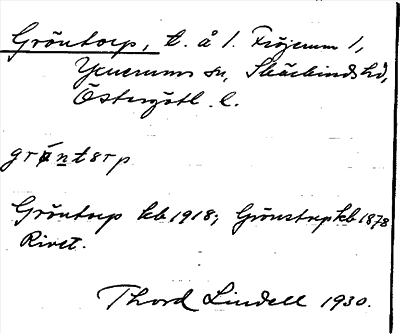 Gröntorp, t. å 1. Fröjerum 1,
Yxnerums sn, Skärkinds hd,
Östergötl. l.
grö̀nt𝑎rp
Gröntorp kb 1918; Grönstorp kb 1878
Rivet.
Thord Lindell 1930.